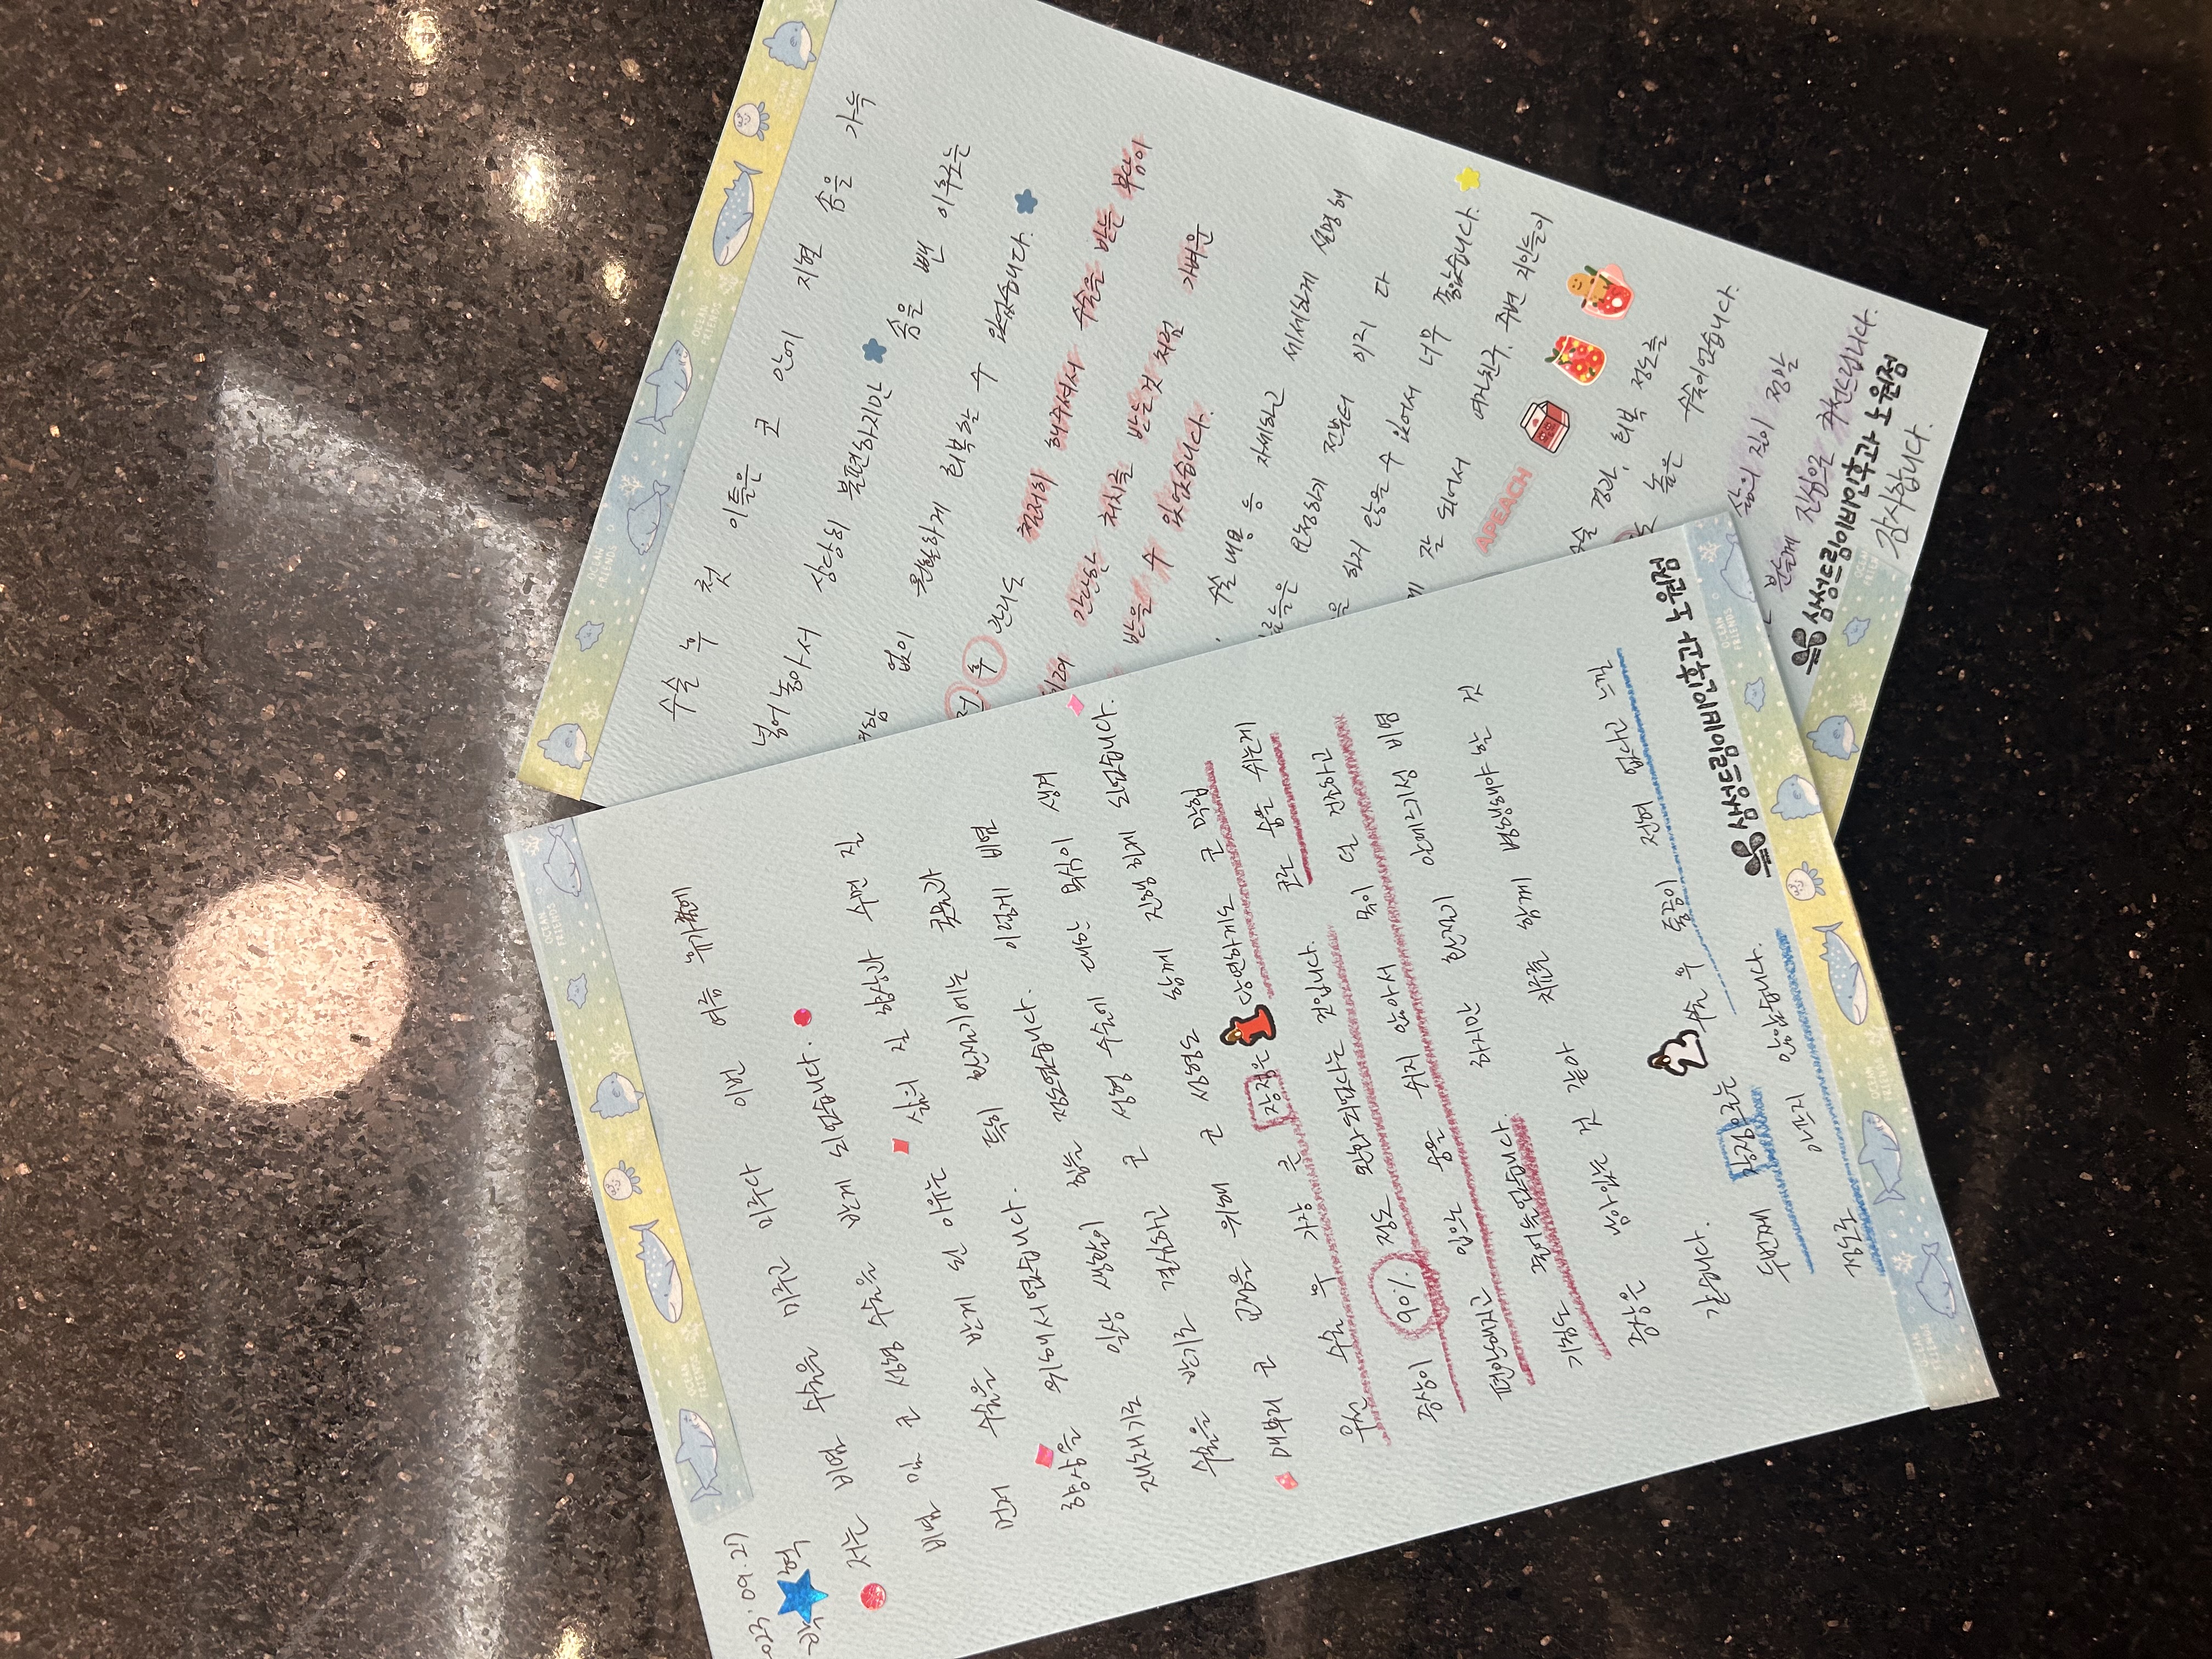 2023.09.27
박 혁
저는 비염 수술을 미루고 미루다 이번 여름 휴가에
비염 및 코 성형 수술을 받게 되었습니다.
먼저 수술을 받게 된 이유는 삶의 질 향상과 수면 질
향상을 위해서였습니다. 특히 환절기에는 콧물과
재채기로 일상 생활이 힘들 정도였습니다. 이렇게 비염
수술을 받기로 결심하고 코 성형 수술에 대한 욕심이 생겨
매부리 코 교정을 위해 코 성형도 함께 진행하게 되었습니다.
우선 수술 후 가장 큰 장점은 1 당연하게도 코 막힘
증상이 90% 정도 완화되었다는 것입니다. 코로 숨을 쉬는게
편안해지고 입으로 숨을 쉬지 않아서 목이 덜 건조하고
기침도 줄어들었습니다. 하지만 환절기 알레르기성 비염
증상은 남아있는 것 같아 치료를 함께 병행해야 할 것
같습니다.
두번째 장점으로는 2 수술 후 통증이 전혀 없다고 느낄
정도로 아프지 않았습니다.
삼성드림이비인후과 노원점
수술 후 첫 이틀은 코 안에 지혈 솜을 가득
넣어놓아서 상당히 불편하지만 솜을 뺀 이후로는
없이 원활하게 회복할 수 있었습니다.
전.후 관리도 철저히 해주셔서 수술을 받는 부담이
간단한 처치를 받는것 처럼 가벼운
받을 수 있었습니다.
수술 내용 등 자세하고 세세하게 설명해
요청하기 전부터 미리 다
을 하지 않을 수 있어서 너무 좋았습니다.
잘 되어서 여자친구, 주변 지인들이
APEACH
수술 경과, 회복 정도를
높은 수술이었습니다.
삶의 질이 정말
분들께 진심으로 추천드립니다.
삼성드림이비인후과 노원점
감사합니다.
OCEAN FRIENDS
OCEAN FRIENDS
OCEAN FRIENDS
OCEAN FRIENDS
OCEAN FRIENDS
OCEAN FRIENDS
OCEAN FRIENDS